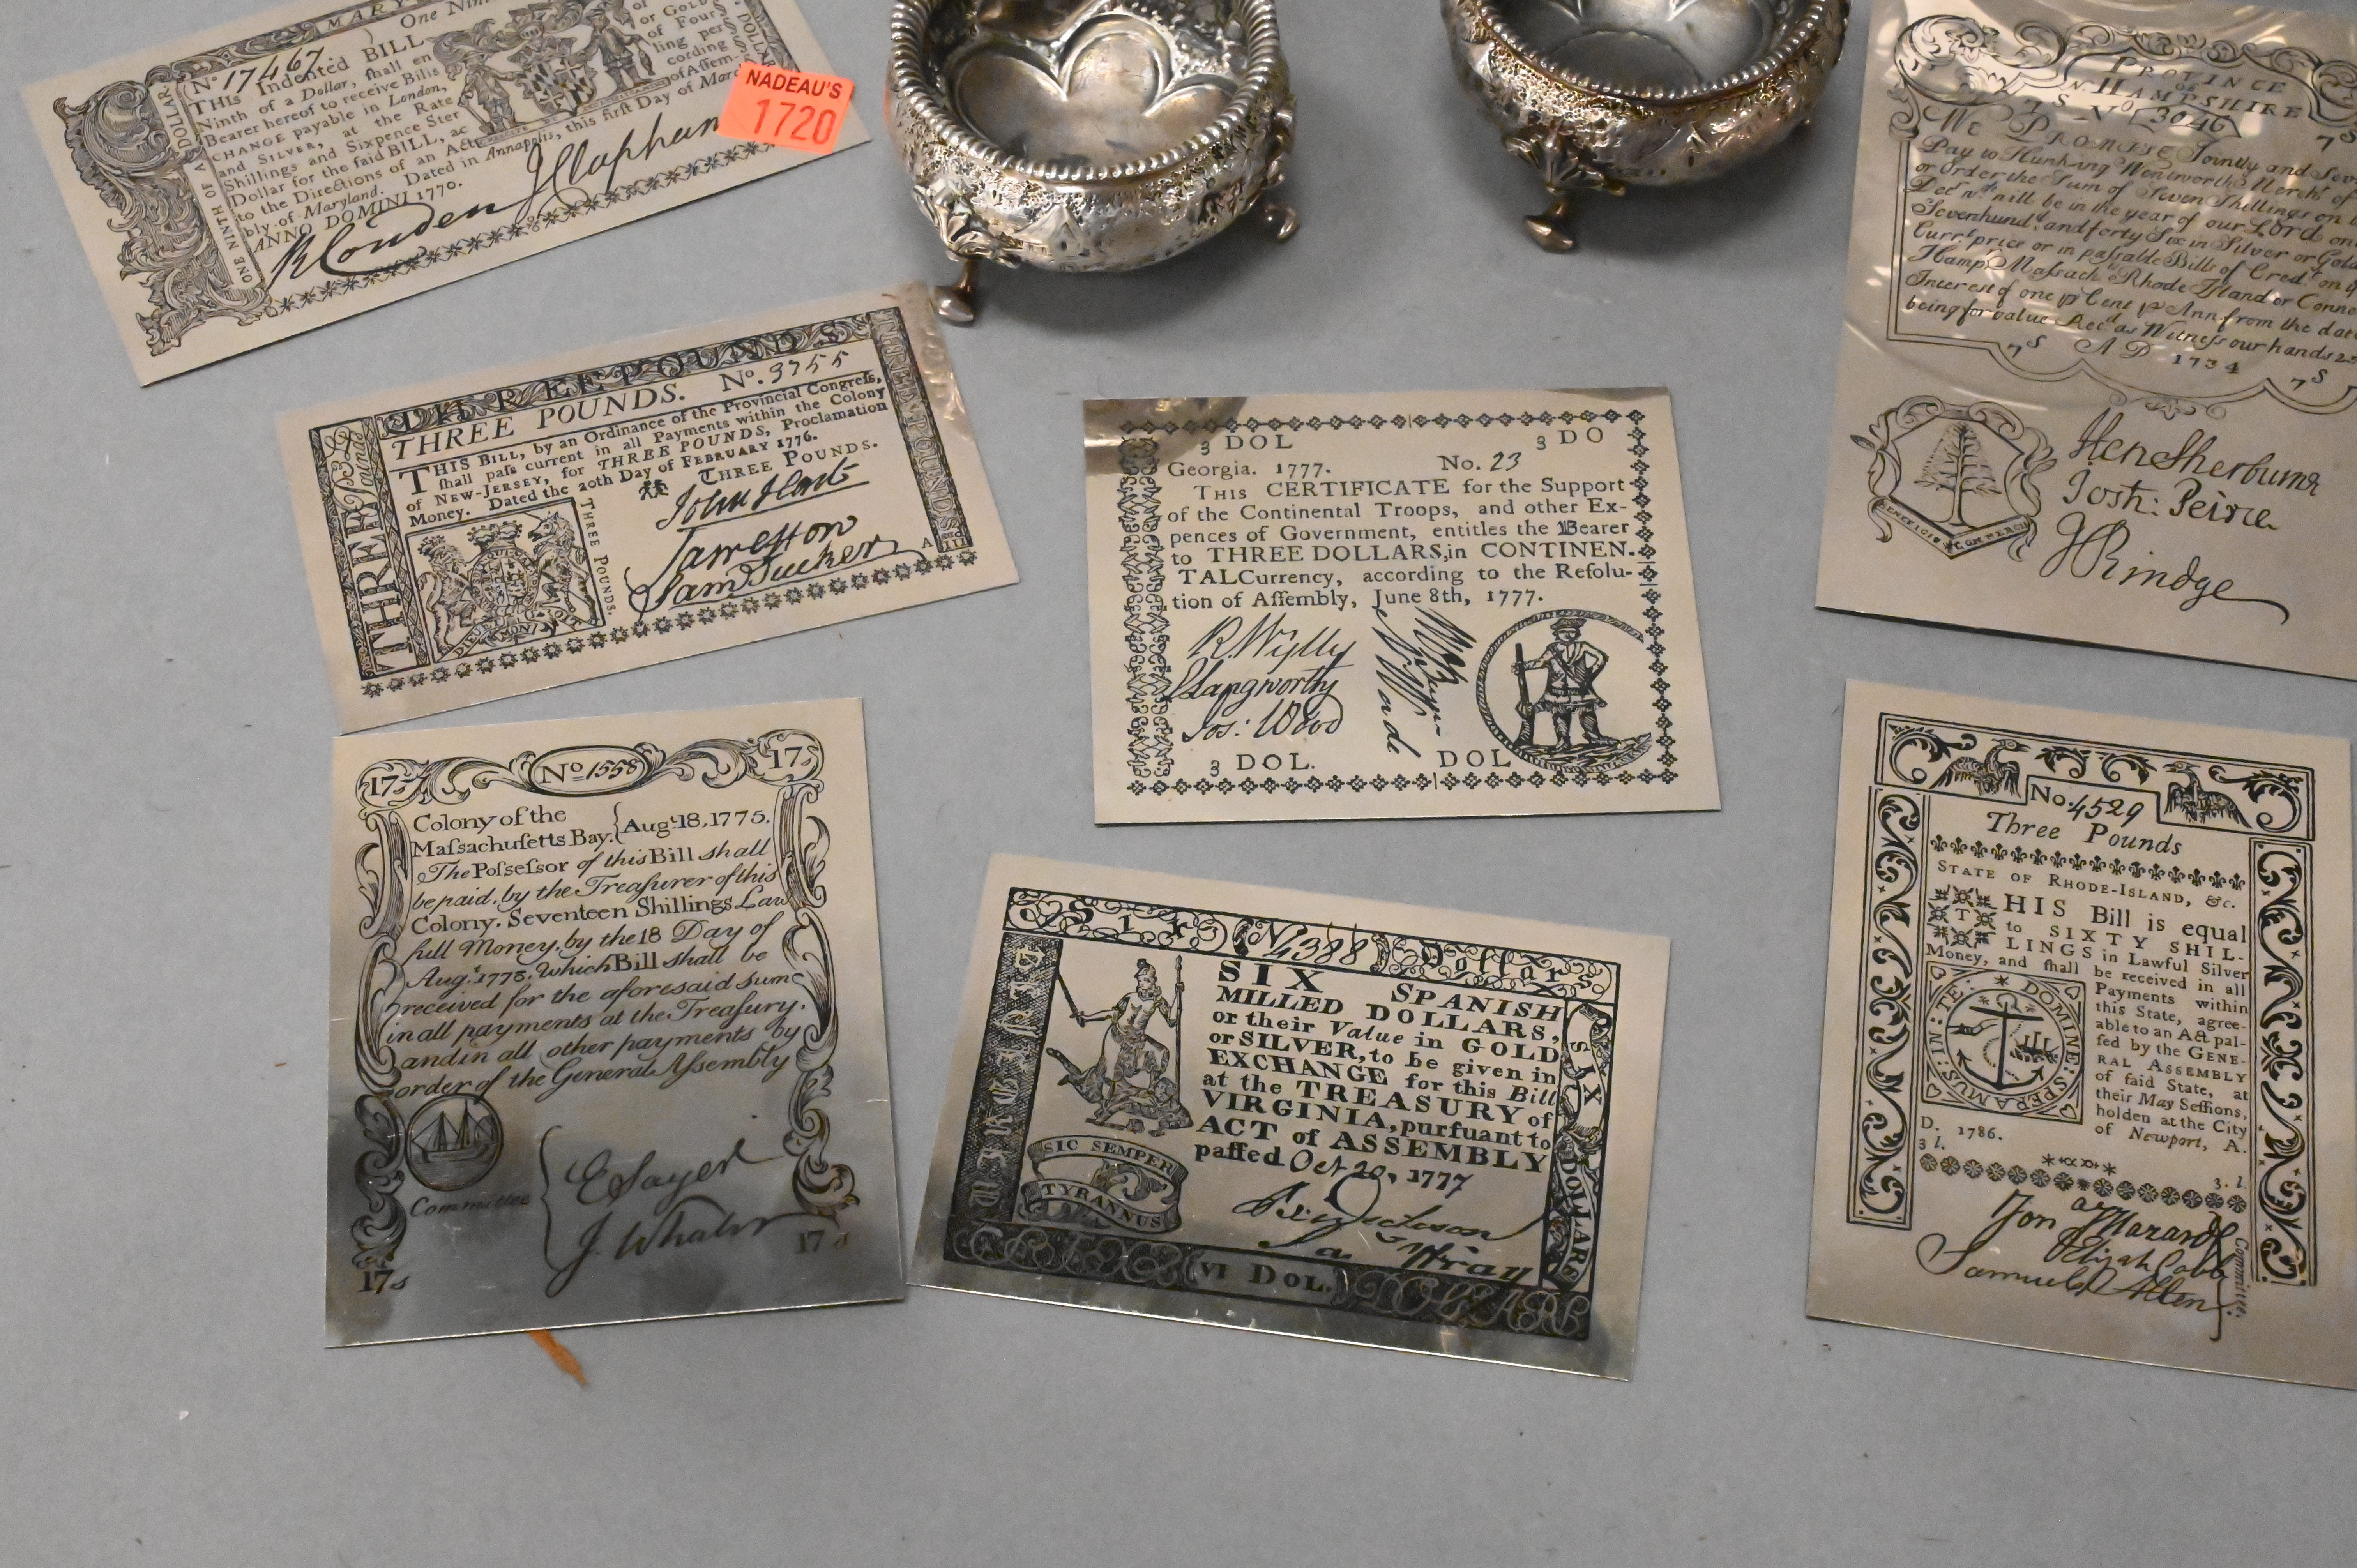 MARY
One Nin
No. 17467
THIS Indented BILL
Ninth of a Dollar, ſhall en
Bearer hereof to receive Bills
CHANGE payable in London,
and SILVER, at the Rate
Shillings and Sixpence Ster
Dollar for the ſaid BILL, ac
to the Directions of an Act
bly of Maryland. Dated in Annapolis, this firſt Day of Mar
ANNO DOMINI 1770.
of
or Gold
of Four
ling per
cording
of Aſſem-
ONE NINTH OF A DOLLAR
R Couden
J Clapham
NADEAU'S
1720
THREE POUNDS
THREE POUNDS. No. 3755
THIS BILL, by an Ordinance of the Provincial Congreſs,
ſhall paſs current in all Payments within the Colony
of NEW-JERSEY, for THREE POUNDS, Proclamation
Money. Dated the 20th Day of FEBRUARY 1776.
THREE POUNDS.
THREE POUNDS.
John Hart
Sam Tucker
THREE
Nº 1558
17s
17s
Colony of the
Maſsachuſetts Bay. {Augt 18, 1775.
The Poſseſsor of this Bill shall
be paid, by the Treaſurer of this
Colony, Seventeen Shillings Law
full Money, by the 18 Day of
Aug.t 1778. Which Bill shall be
received for the aforesaid sum
in all payments at the Treaſury.
and in all other payments by
order of the General Aſsembly
Committee
E Sayer
J. Whaler
17s
17s
3 DOL 3 DO
Georgia. 1777. No. 23
THIS CERTIFICATE for the Support
of the Continental Troops, and other Ex-
pences of Government, entitles the Bearer
to THREE DOLLARS, in CONTINEN-
TAL Currency, according to the Reſolu-
tion of Aſſembly, June 8th, 1777.
R. Wylly
Langworthy
Jos: Wood
3 DOL. DOL
Six N 4388 Dollars
SIX SPANISH
MILLED DOLLARS,
or their Value in GOLD
or SILVER, to be given in
EXCHANGE for this Bill
at the TREASURY of
VIRGINIA, purſuant to
ACT of ASSEMBLY
paſſed Oct 20, 1777
SIC SEMPER
TYRANNUS
SIX DOLLARS
VI DOL.
PROVINCE
OF
N. HAMPSHIRE
7S No 3046 7S
We PROMISE Jointly and Seve
Pay to Hunking Wentworth Mercht of
or Order the Sum of Seven Shillings on
Decr wch will be in the year of our Lord on
Sevenhundd and forty Six in Silver or Gold
Currt price or in paſsable Bills of Credt on
Hampr Maſsachs Rhode Iſland or Conne
Interest of one pr Cent pr Ann from the dat
being for value Recd as Witneſs our hands
7S A D 1734 7S
BENEFICIO COMMERCII
Hen Sherburne
Josh: Peirce
J Rindge
No. 4529
Three Pounds
STATE OF RHODE-ISLAND, &c.
THIS Bill is equal
to SIXTY SHIL-
LINGS in Lawful Silver
Money, and ſhall be received in all
Payments within
this State, agree-
able to an Act paſ-
ſed by the GENE-
RAL ASSEMBLY
of ſaid State, at
their May Seſſions,
holden at the City
of Newport, A.
D. 1786.
3 l.
3. l.
IN: TE: DOMINE: SPERAMUS:
Jon a Hazard
Elijah Cobb
Samuel Allen
Committee.